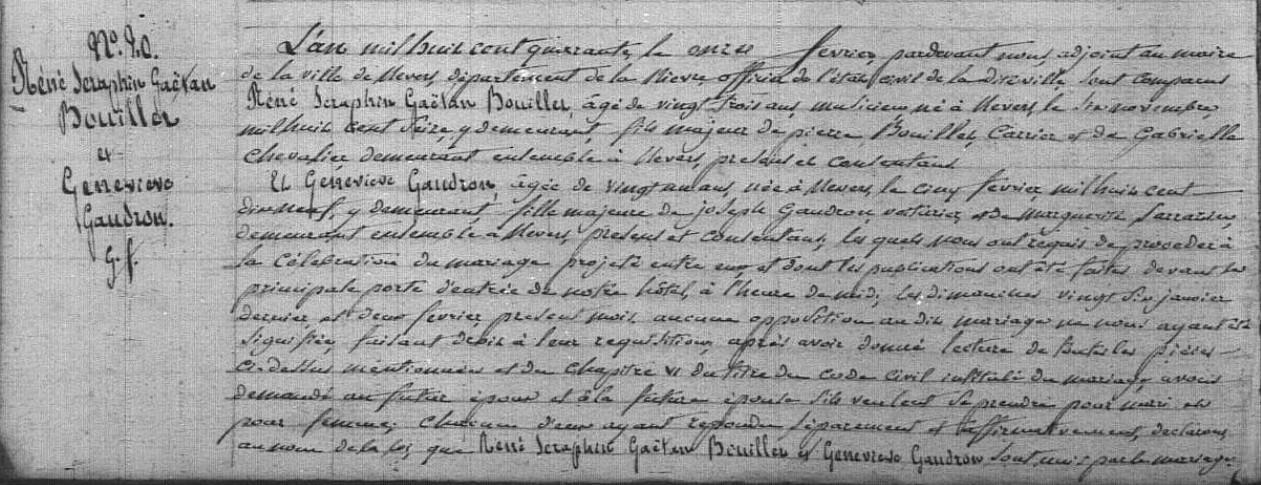 N°. 20.
Réné Seraphin Gaëtan
Bouiller
et
Genevieve
Gaudron.
G. f.
L'an mil huit cent quarante, le onze fevrier, pardevant nous, adjoint au maire
de la ville de Nevers, département de la Nievre officier de l'état civil de la dite ville, sont comparus
Réné Seraphin Gaëtan Bouiller, âgé de vingt trois ans, musicien, né à Nevers, le six novembre
mil huit cent seize, y demeurant, fils majeur de pierre Bouiller, Carrier et de Gabrielle
Chevalier demeurant ensemble à Nevers, présens et consentans
Et Genevieve Gaudron, âgée de vingt un ans, née à Nevers, le cinq février mil huit cent
dix neuf, y demeurant, fille majeure de joseph Gaudron voiturier, et de Marguerite Sarrazin,
demeurant ensemble à Nevers, présens et consentans, les quels nous ont requis de procéder à
la célébration du mariage projeté entre eux et dont les publications ont été faites devant la
principale porte d'entrée de notre hôtel, à l'heure de midi, les dimanches vingt six janvier
dernier et deux fevrier present mois aucune opposition au dit mariage ne nous ayant été
signifiée, faisant droit à leur requisition, après avoir donné lecture de toutes les pièces
ci-dessus mentionnées et du chapitre VI du titre du code civil intitulé du mariage avons
demandé au futur époux et à la future épouse s'ils veulent se prendre pour mari et
pour femme; chacun d'eux ayant repondu séparement et affirmativement, declarons
au nom de la loi, que Réné Seraphin Gaëtan Bouiller et Genevieve Gaudron sont unis par le mariage